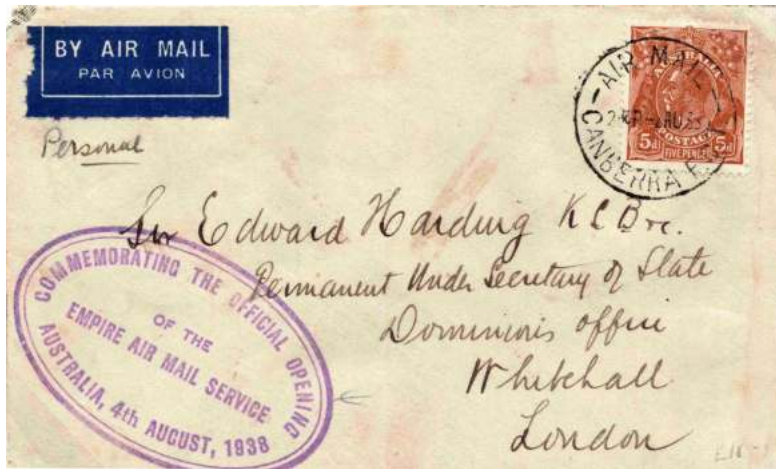 BY AIR MAIL
PAR AVION
AIR MAIL
CANBERRA
AUSTRALIA
POSTAGE
5d FIVE PENCE 5d
Personal
Sir Edward Harding K C B etc.
Permanent Under Secretary of State
Dominions Office
Whitehall
London
COMMEMORATING THE OFFICIAL OPENING
OF THE
EMPIRE AIR MAIL SERVICE
AUSTRALIA, 4th AUGUST, 1938